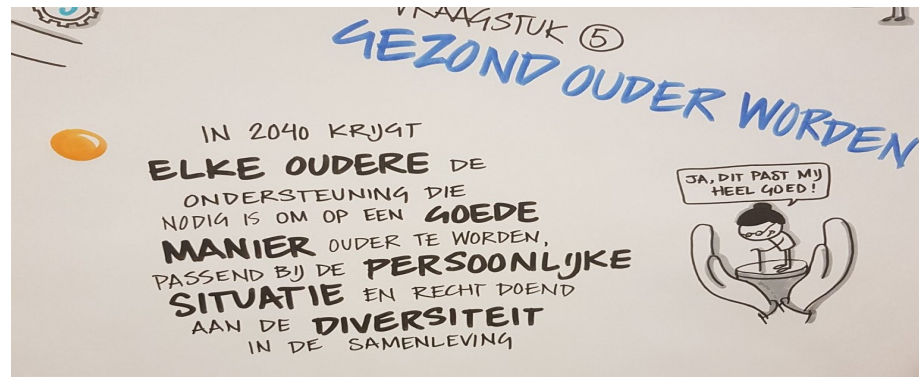 VRAAGSTUK 5
GEZOND OUDER WORDEN
IN 2040 KRIJGT
ELKE OUDERE DE
ONDERSTEUNING DIE
NODIG IS OM OP EEN GOEDE
MANIER OUDER TE WORDEN,
PASSEND BIJ DE PERSOONLIJKE
SITUATIE EN RECHT DOEND
AAN DE DIVERSITEIT
IN DE SAMENLEVING
JA, DIT PAST MIJ
HEEL GOED!